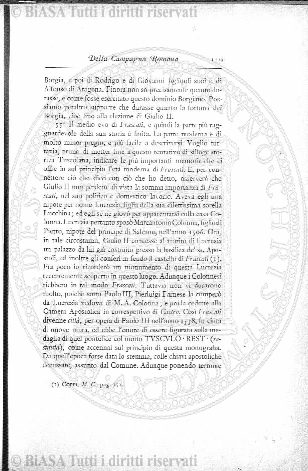 © BIASA Tutti i diritti riservati
Della Campagna Romana
Borgia, e poi di Rodrigo e di Giovanni
Alfonso di Aragona. Finora non so precisamente quanto
, e come fosse esercitato questo dominio Borgiano. Pos-
siamo peraltro supporre che durasse quanto la fortuna dei
Borgia, cioè fino alla elezione di Giulio II.
Il medio evo di Frascati, e quindi la parte più rag-
guardevole della sua storia è finita. La parte moderna è di
molto minor pregio, e più facile a descriversi. Voglio tut-
tavia, prima di metter fine a questo
Tusculana, indicare le più importanti memorie che ci
offre in sul principio l'età moderna di Frascati. E, per con-
nettere ciò che dico con ciò che ho detto, osserverò che
Giulio II non perdette di vista la somma importanza di Fra-
scati, nel suo politico e domestico lavoro. Aveva egli una
nipote per nome Lucrezia, figlia della sua dilettissima sorella
Lucchina; ed egli se ne giovò per apparentarsi colla casa Co-
lonna. Lucrezia pertanto sposò Marcantonio Colonna, figlio di
Pietro, nipote del principe di Salerno, nell'anno 1506. Ora,
in tale circostanza, Giulio II concesse al marito di Lucrezia
un palazzo da lui già costruito presso la basilica de' ss. Apo-
stoli, ed inoltre gli conferì in feudo il castello di Frascati (1).
Fra poco io ricorderò un monumento di questa Lucrezia
recentemente scoperto in questo luogo. Adunque i Colonnesi
riebbero in tal modo Frascati. Tuttavia non vi durarono
molto, poichè sotto Paolo III, Pierluigi Farnese la comperò
da Lucrezia vedova di M. A. Colonna, e poi la cedette alla
Camera Apostolica in corrispettivo di Castro. Così Frascati
divenne città, per opera di Paolo III nell'anno 1538, fu cinta
di nuove mura, ed ebbe l'onore di essere figurata sulla me-
daglia di quel pontefice col motto TVSCVLO · REST · (re-
), come accennai sul principio di questa monografia.
Da quell'epoca forse data lo stemma, colle chiavi apostoliche
, assunto dal Comune. Adunque ponendo termine
(1) COPPI, M. C. pag.
© BIASA Tutti i diritti riservati